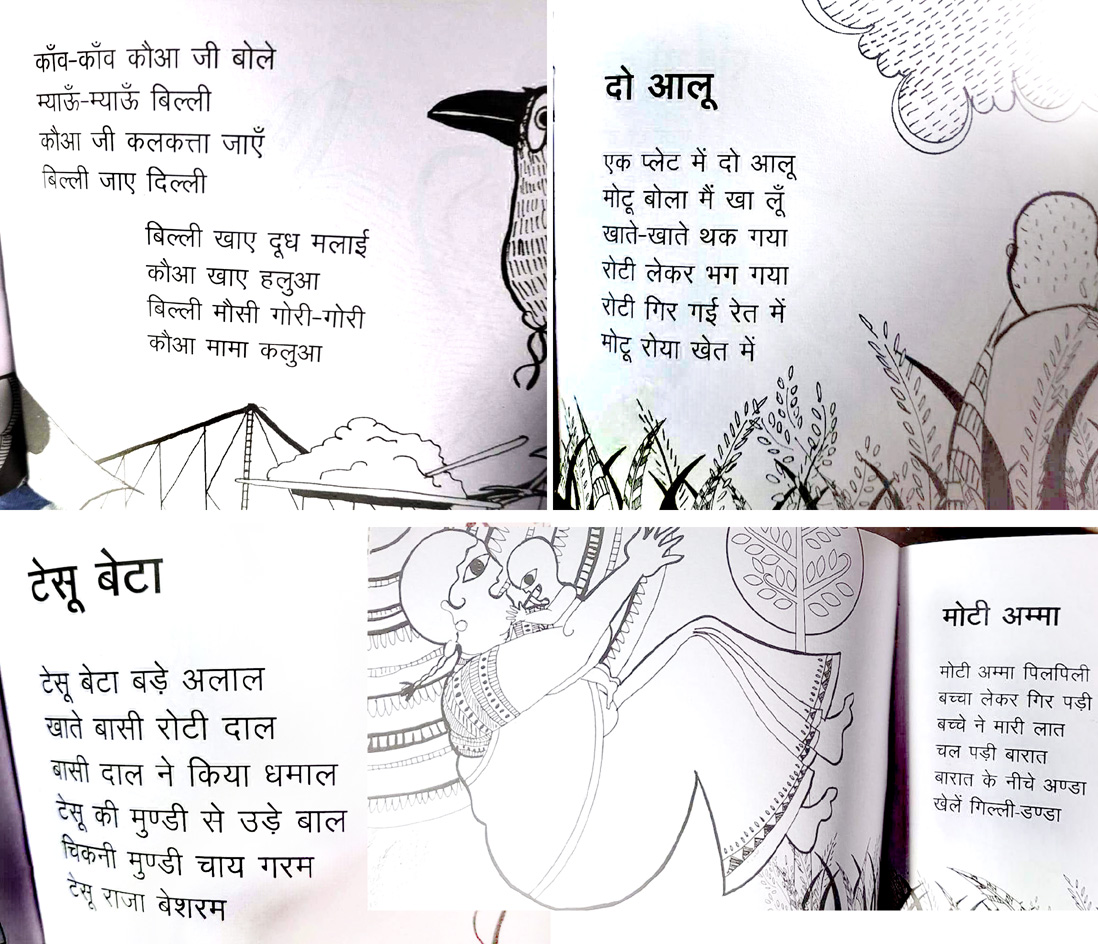 काँव-काँव कौआ जी बोले
म्याऊँ-म्याऊँ बिल्ली
कौआ जी कलकत्ता जाएँ
बिल्ली जाए दिल्ली
बिल्ली खाए दूध मलाई
कौआ खाए हलुआ
बिल्ली मौसी गोरी-गोरी
कौआ मामा कलुआ
दो आलू
एक प्लेट में दो आलू
मोटू बोला मैं खा लूँ
खाते-खाते थक गया
रोटी लेकर भग गया
रोटी गिर गई रेत में
मोटू रोया खेत में
टेसू बेटा
टेसू बेटा बड़े अलाल
खाते बासी रोटी दाल
बासी दाल ने किया धमाल
टेसू की मुण्डी से उड़े बाल
चिकनी मुण्डी चाय गरम
टेसू राजा बेशरम
मोटी अम्मा
मोटी अम्मा पिलपिली
बच्चा लेकर गिर पड़ी
बच्चे ने मारी लात
चल पड़ी बारात
बारात के नीचे अण्डा
खेलें गिल्ली-डण्डा